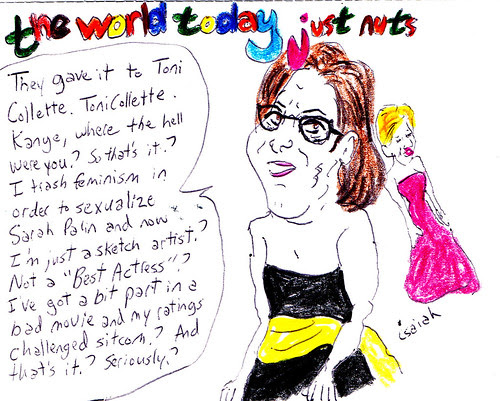 the world today just nuts
They gave it to Toni
Collette. Toni Collette.
Kanye, where the hell
were you? So that's it?
I trash feminism in
order to sexualize
Sarah Palin and now
I'm just a sketch artist?
Not a "Best Actress"?
I've got a bit part in a
bad movie and my ratings
challenged sitcom? And
that's it? Seriously?
isaiah